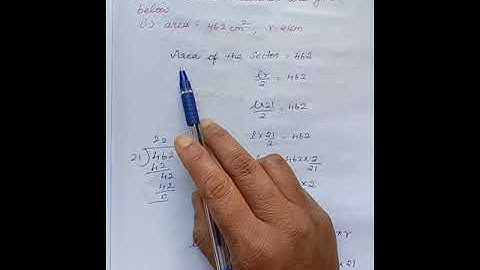 below
(i) area = 462 cm², r = 21cm
Area of the Sector = 462
lr/2 = 462
l×21/2 = 462
l × 21/2 = 462
462 × 2/21
× 2
22
21)462
42
42
42
0
× r
× 21